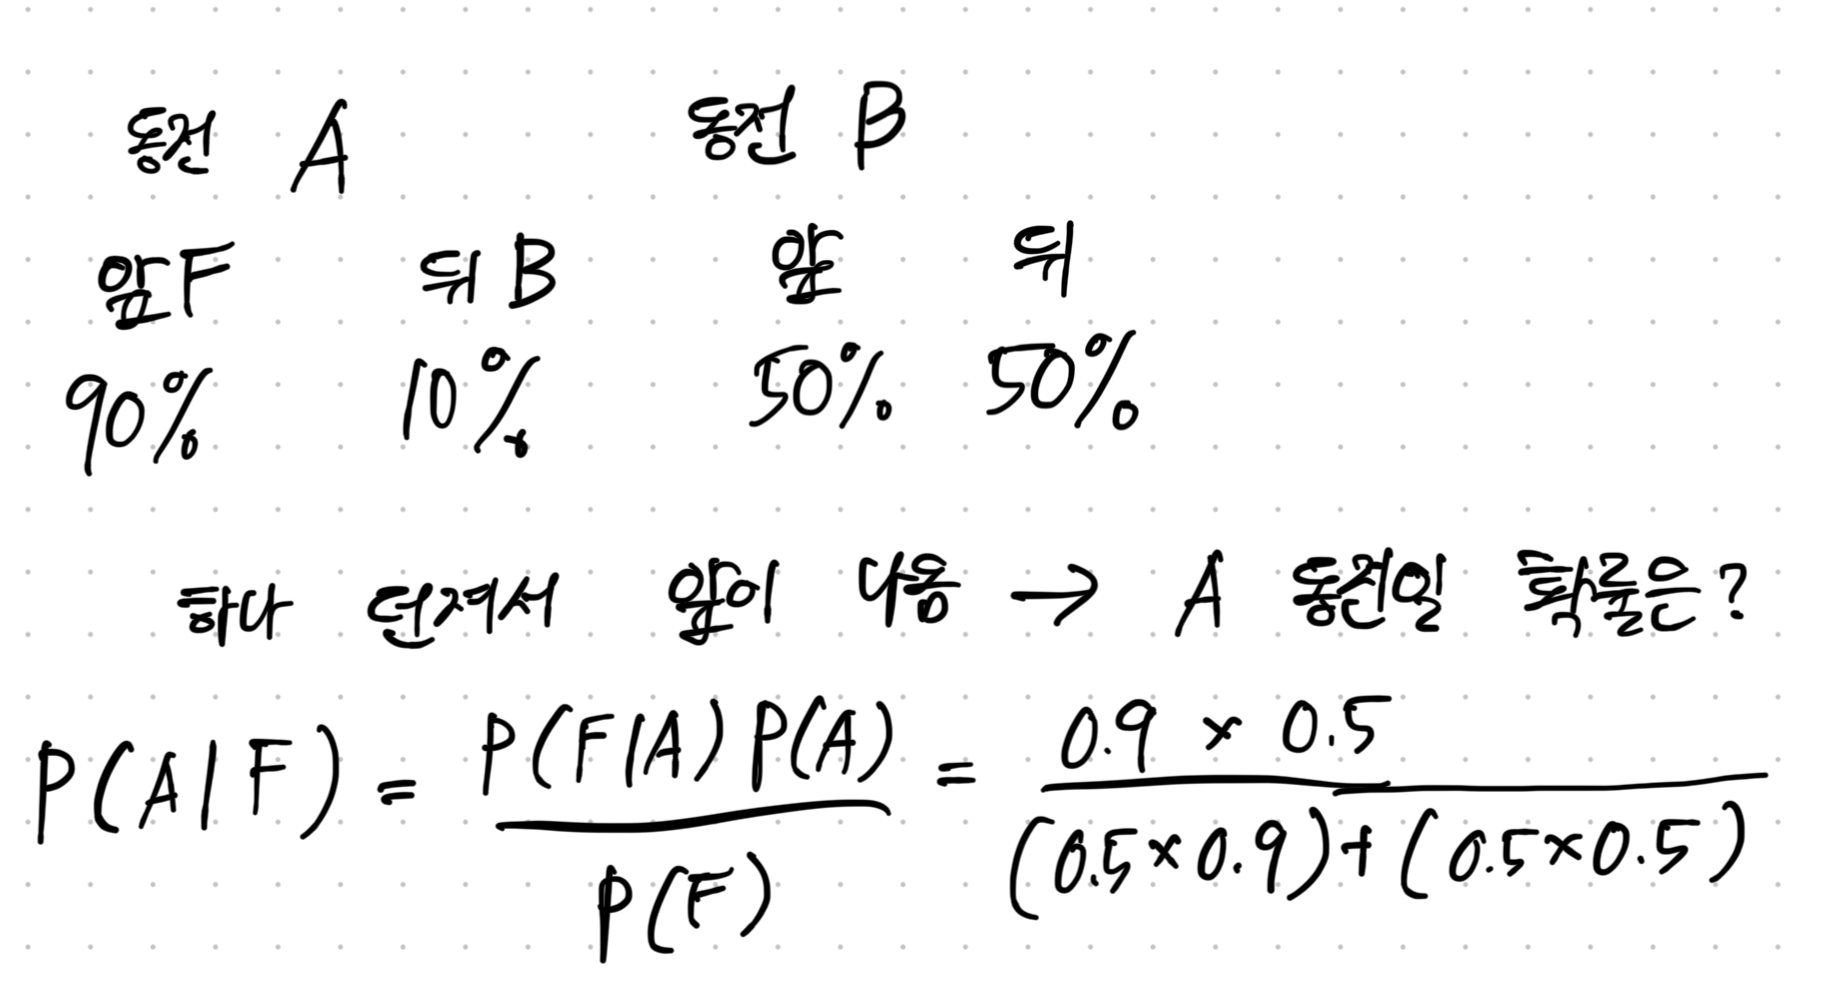 동전 A 동전 B
앞F 뒤B 앞 뒤
90% 10% 50% 50%
하나 던져서 앞이 나옴 → A 동전일 확률은?
P(A|F) = P(F|A) P(A) / P(F) = 0.9 × 0.5 / (0.5×0.9)+(0.5×0.5)